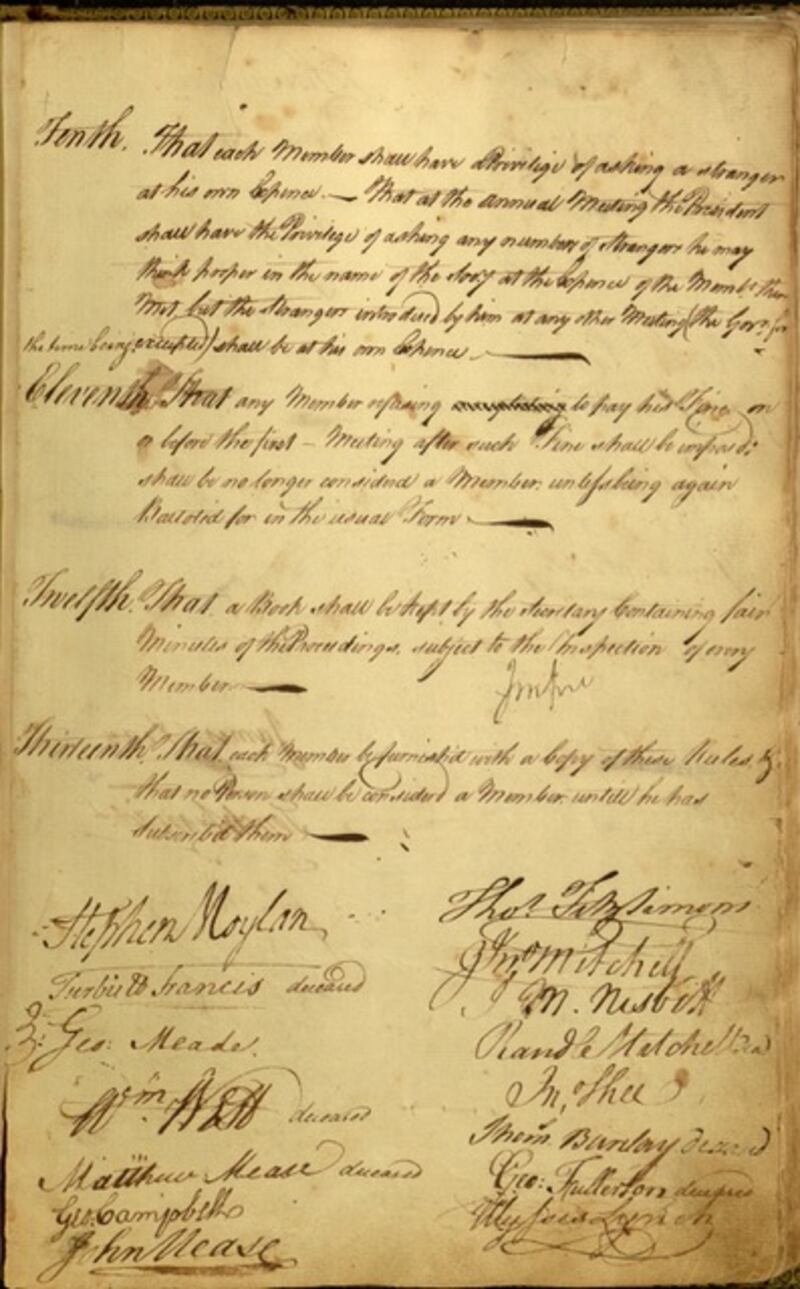 Tenth. That each Member shall have a Privilige of asking a stranger
at his own Expence. — That at the annual Meeting the President
shall have the Privilige of asking any number of Strangers he may
think proper in the name of the Socy at the Expence of the Membs then
Met, but the strangers introduced by him at any other Meeting (the Govr. for
the time being excepted) shall be at his own Expence —
Eleventh. That any Member refusing to pay his Fine on
or before the first – Meeting after such Fine shall be imposed;
shall be no longer considered a Member, unless being again
Balloted for in the usual Form —
Twelfth. That a Book shall be kept by the Secretary Containing fair
Minutes of the Proceedings, subject to the Inspection of every
Member —
Thirteenth. That each Member be furnish'd with a Copy of these Rules &
that no Person shall be considerd a Member untill he has
subscribd them —
Stephen Moylan
Thos. FitzSimons
Turbutt Francis deceased
Jno. Mitchell
Geo: Meade.
J. M. Nesbitt
Wm. West deceased
Randle Mitchell
Jn. Shee
Matthew Mease deceased
Thom. Barclay
Geo: Campbell
Geo: Fullerton deceased
John Mease
Ulysses Lynch